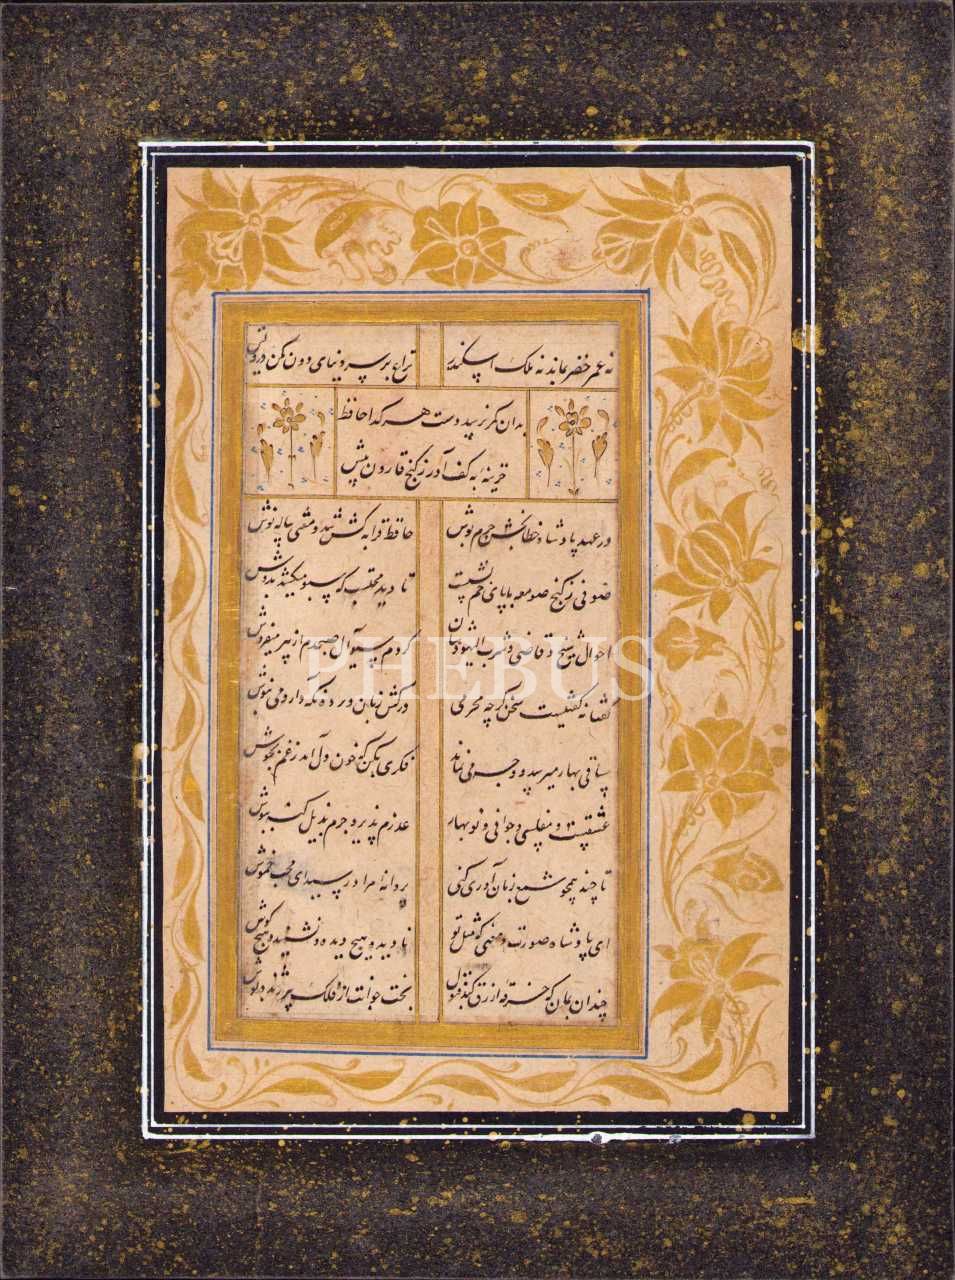 نه عمر خضر بماند نه ملک اسکندر
نزاع بر سر دنیای دون مکن درویش
بدان کمر نرسد دست هر گدا حافظ
خزینه به کف آور ز گنج قارون بیش
در عهد پادشاه خطابخش جرم پوش
حافظ قرابه کش شد و مفتی پیاله نوش
صوفی ز کنج صومعه با پای خم نشست
تا دید محتسب که سبو میکشد بدوش
احوال شیخ و قاضی و شرب الیهودشان
کردم سؤال صبحدم از پیر میفروش
گفتا نه گفتنیست سخن گرچه محرمی
درکش زبان و پرده نگه دار و می بنوش
ساقی بهار میرسد و وجه می نماند
فکری بکن که خون دل آمد ز غم بجوش
عشقست و مفلسی و جوانی و نوبهار
عذرم پذیر و جرم بذیل کرم بپوش
تا چند همچو شمع زبان آوری کنی
پروانه مراد رسید ای محب خموش
ای پادشاه صورت و معنی که مثل تو
نادیده هیچ دیده و نشنیده هیچ گوش
چندان بمان که خرقه ازرق کند قبول
بخت جوانت از فلک پیر ژنده پوش
PHEBUS